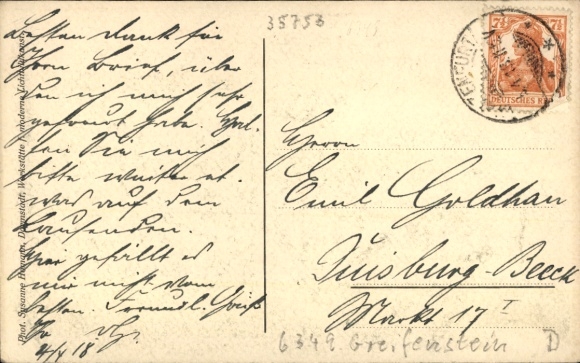 35753
Besten Dank für
Ihren Brief, über
den ich mich sehr
gefreut habe. Hal-
ten Sie mich
bitte weiter et-
was auf dem
Laufenden.
Hier gefällt es
mir nicht vom
besten. Freundl. Gruß
Ihr
4/V 18
Phot. Susanne Homann, Darmstadt, Werkstätte f. moderne Lichtbildkunst
7½ 7½
DEUTSCHES REICH
Herrn
Emil Goldhan
Duisburg-Beeck
Markt 17 I
6349 Greifenstein D